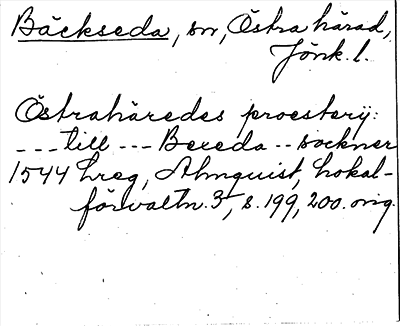 Bäckseda, sn, Östra härad,
Jönk. l.
Östrahäredes proesterij:
--- till --- Bexeda -- sockner
1544 Lreg, Almquist, Lokal-
förvaltn. 3, s. 199, 200. orig.